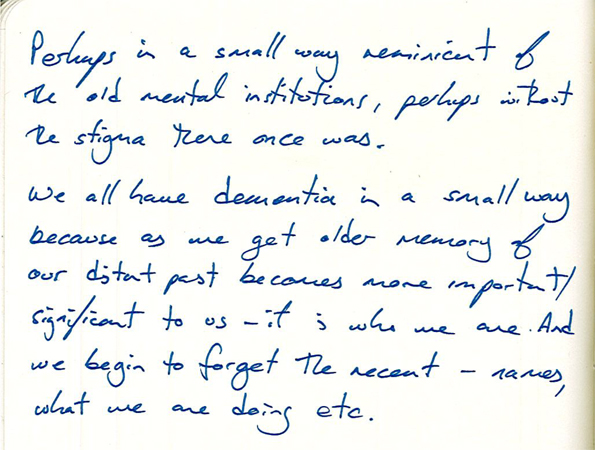 Perhaps in a small way reminicent of
the old mental institutions, perhaps without
the stigma there once was.
We all have dementia in a small way
because as we get older memory of
our distant past becomes more important/
significant to us – it is who we are. And
we begin to forget the recent – names,
what we are doing etc.